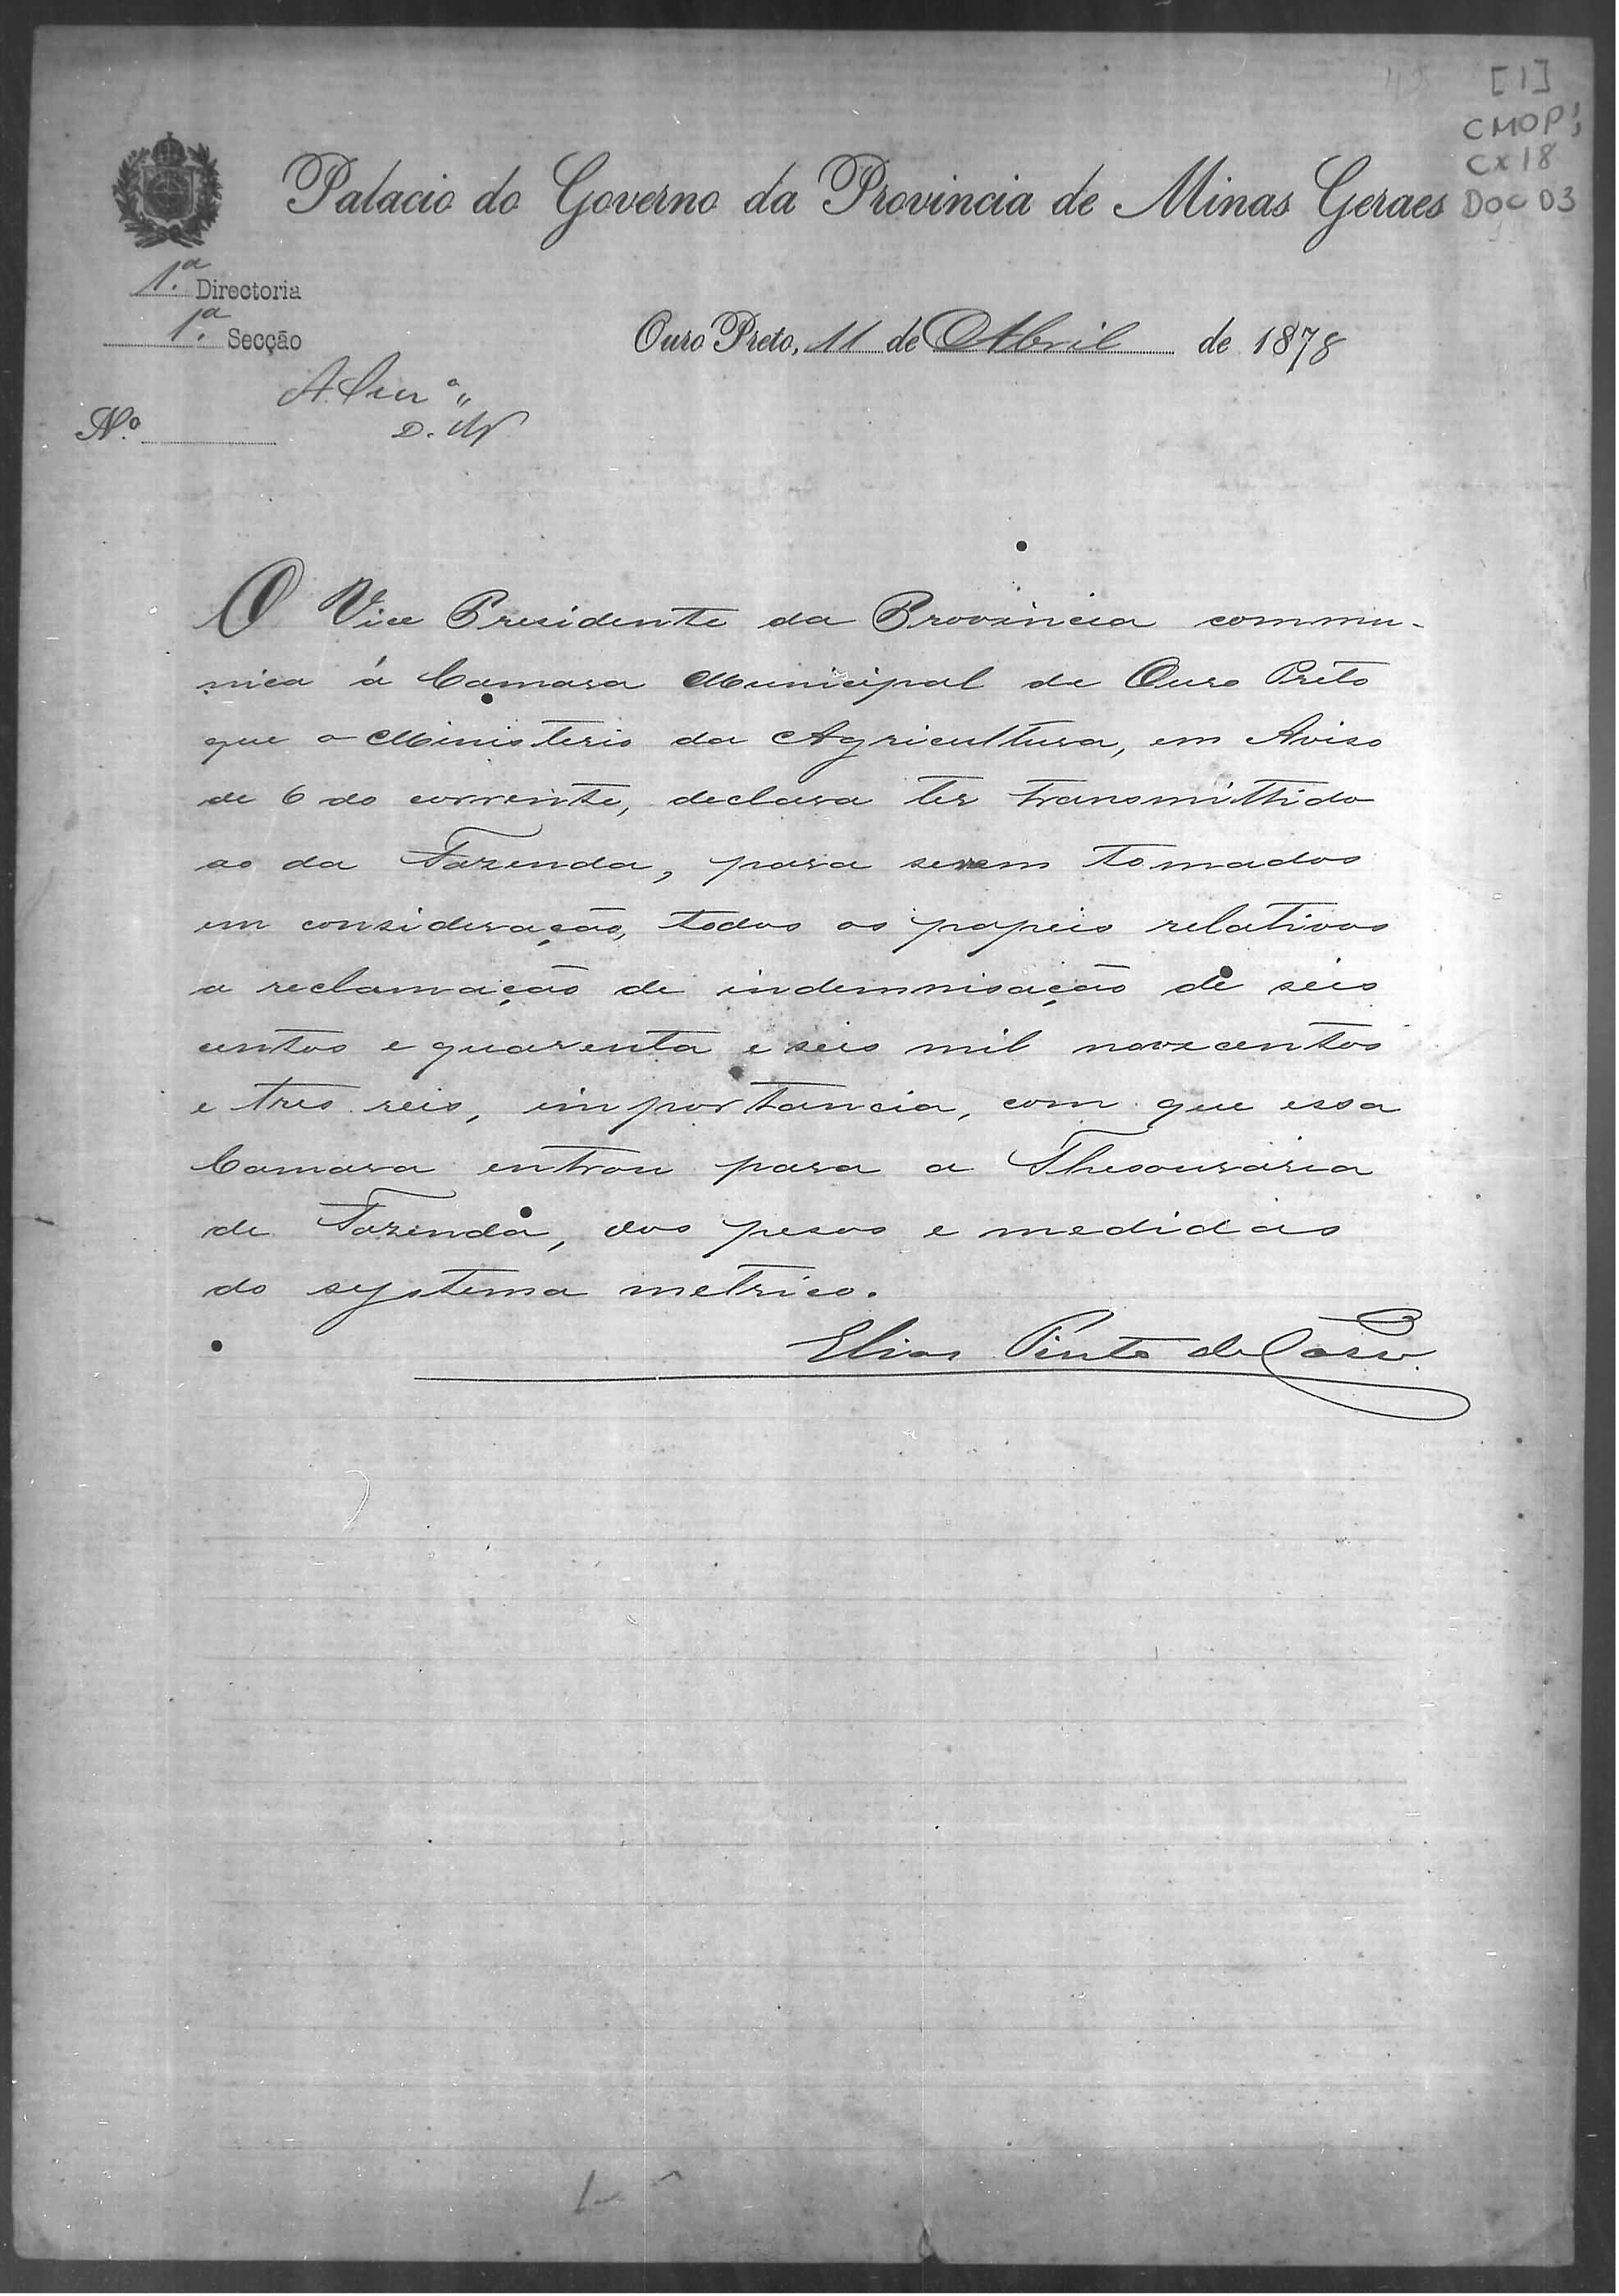 [1]
CMOP;
CX 18
DOC 03
Palacio do Governo da Provincia de Minas Geraes
1.ª Directoria
1.ª Secção
Ouro Preto, 11 de Abril de 1878
N.º
O Vice Presidente da Provincia commu-
nica á Camara Municipal de Ouro Preto
que o Ministerio da Agricultura, em Aviso
de 6 do corrente, declara ter transmittido
ao da Fazenda, para serem tomados
em consideração, todos os papeis relativos
a reclamação de indemnisação de seis
centos e quarenta e seis mil novecentos
e tres reis, importancia, com que essa
Camara entrou para a Thesouraria
de Fazenda, dos pesos e medidas
do systema metrico.
Elias Pinto de Carv.